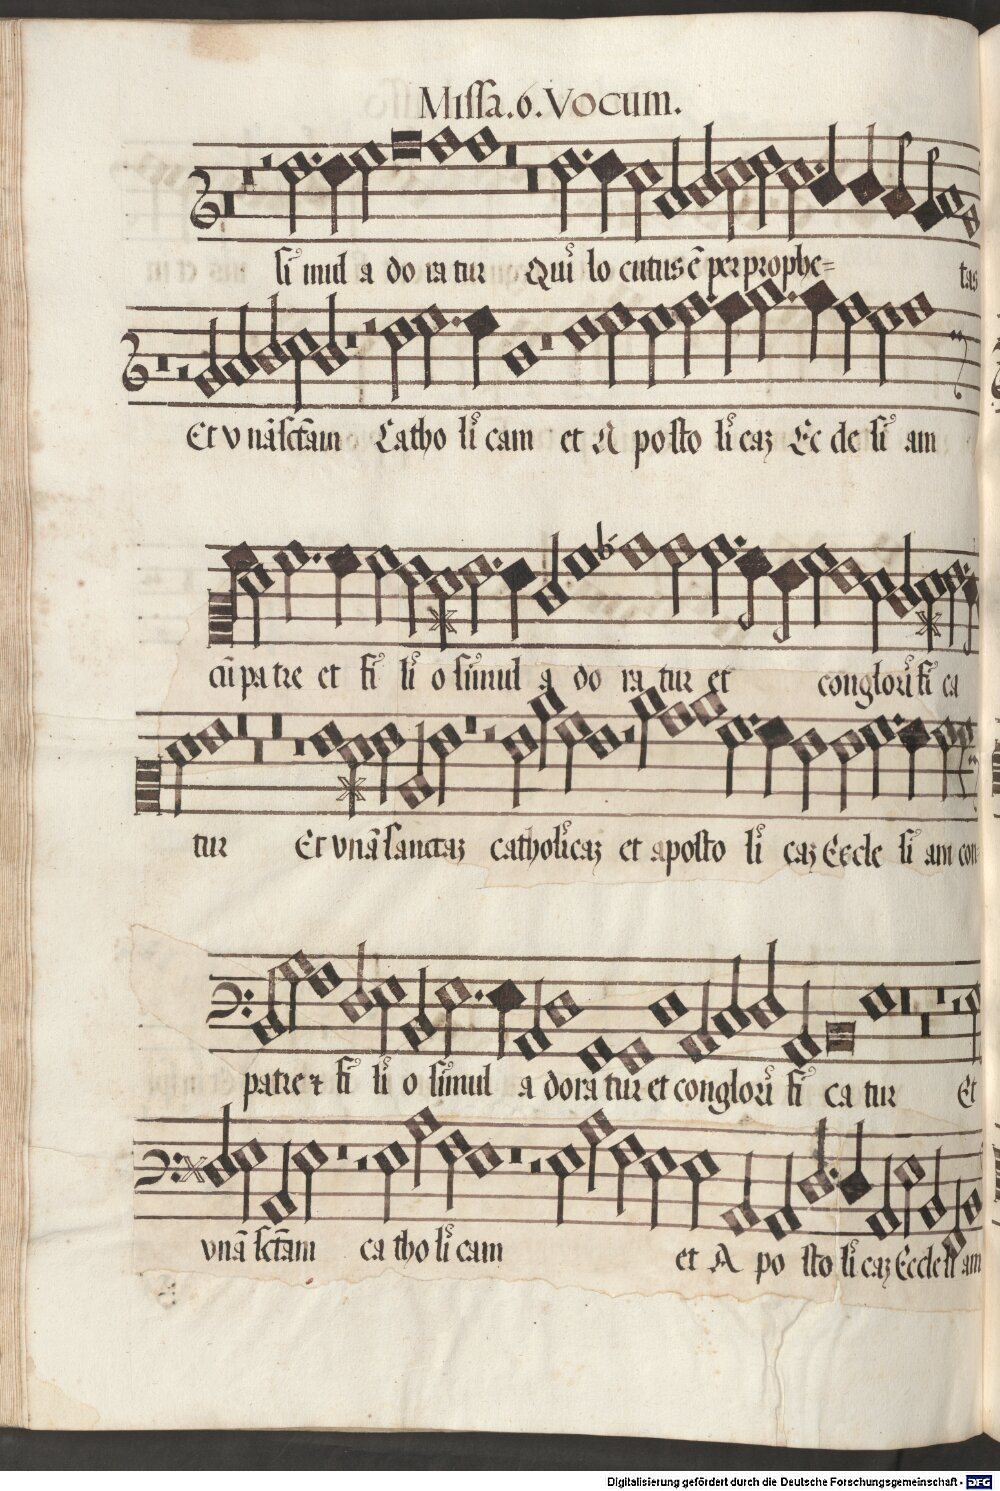 Missa.6.Vocum.
si mul a do ra tur Qui lo cutus ē per prophe= tas
Et v nā sctam Catho li cam et A posto li caʒ Ec cle si am
cū pa tre et fi li o simul a do ra tur et conglori fi ca
tur Et vnā sanctaʒ catholicaʒ et aposto li caʒ Eccle si am con
patre et fi li o simul a dora tur et conglori fi ca tur Et
vnā sctam ca tho li cam et A po sto li caʒ Eccle si am
Digitalisierung gefördert durch die Deutsche Forschungsgemeinschaft - DFG